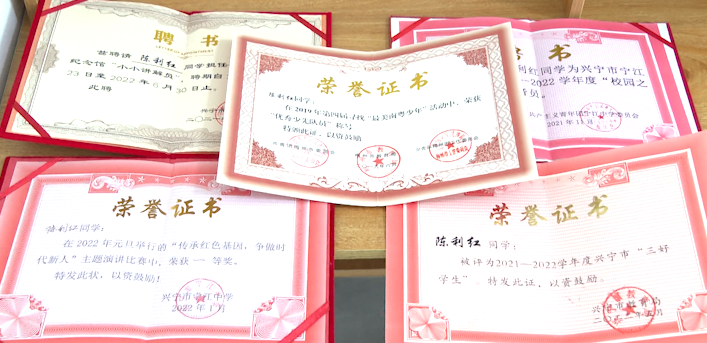 聘 书
兹聘请 陈利红 同学担任
纪念馆“小小讲解员”，聘期自
23日至2022年6月30日止。
此聘
荣誉证书
陈利红同学：
在2019年第四届寻找“最美南粤少年”活动中，荣获
“优秀少先队员”称号
特颁此证，以资鼓励
书
利红同学为兴宁市宁江
2022学年度“校园之
2021年11月
荣誉证书
陈利红同学：
在2022年元旦举行的“传承红色基因，争做时
代新人”主题演讲比赛中，荣获 一 等奖。
特发此状，以资鼓励！
兴宁市宁江中学
2022年1月
荣誉证书
陈利红 同学：
被评为2021—2022学年度兴宁市“三好
学生”，特发此证，以资鼓励。
兴宁市教育局
二〇二二年五月